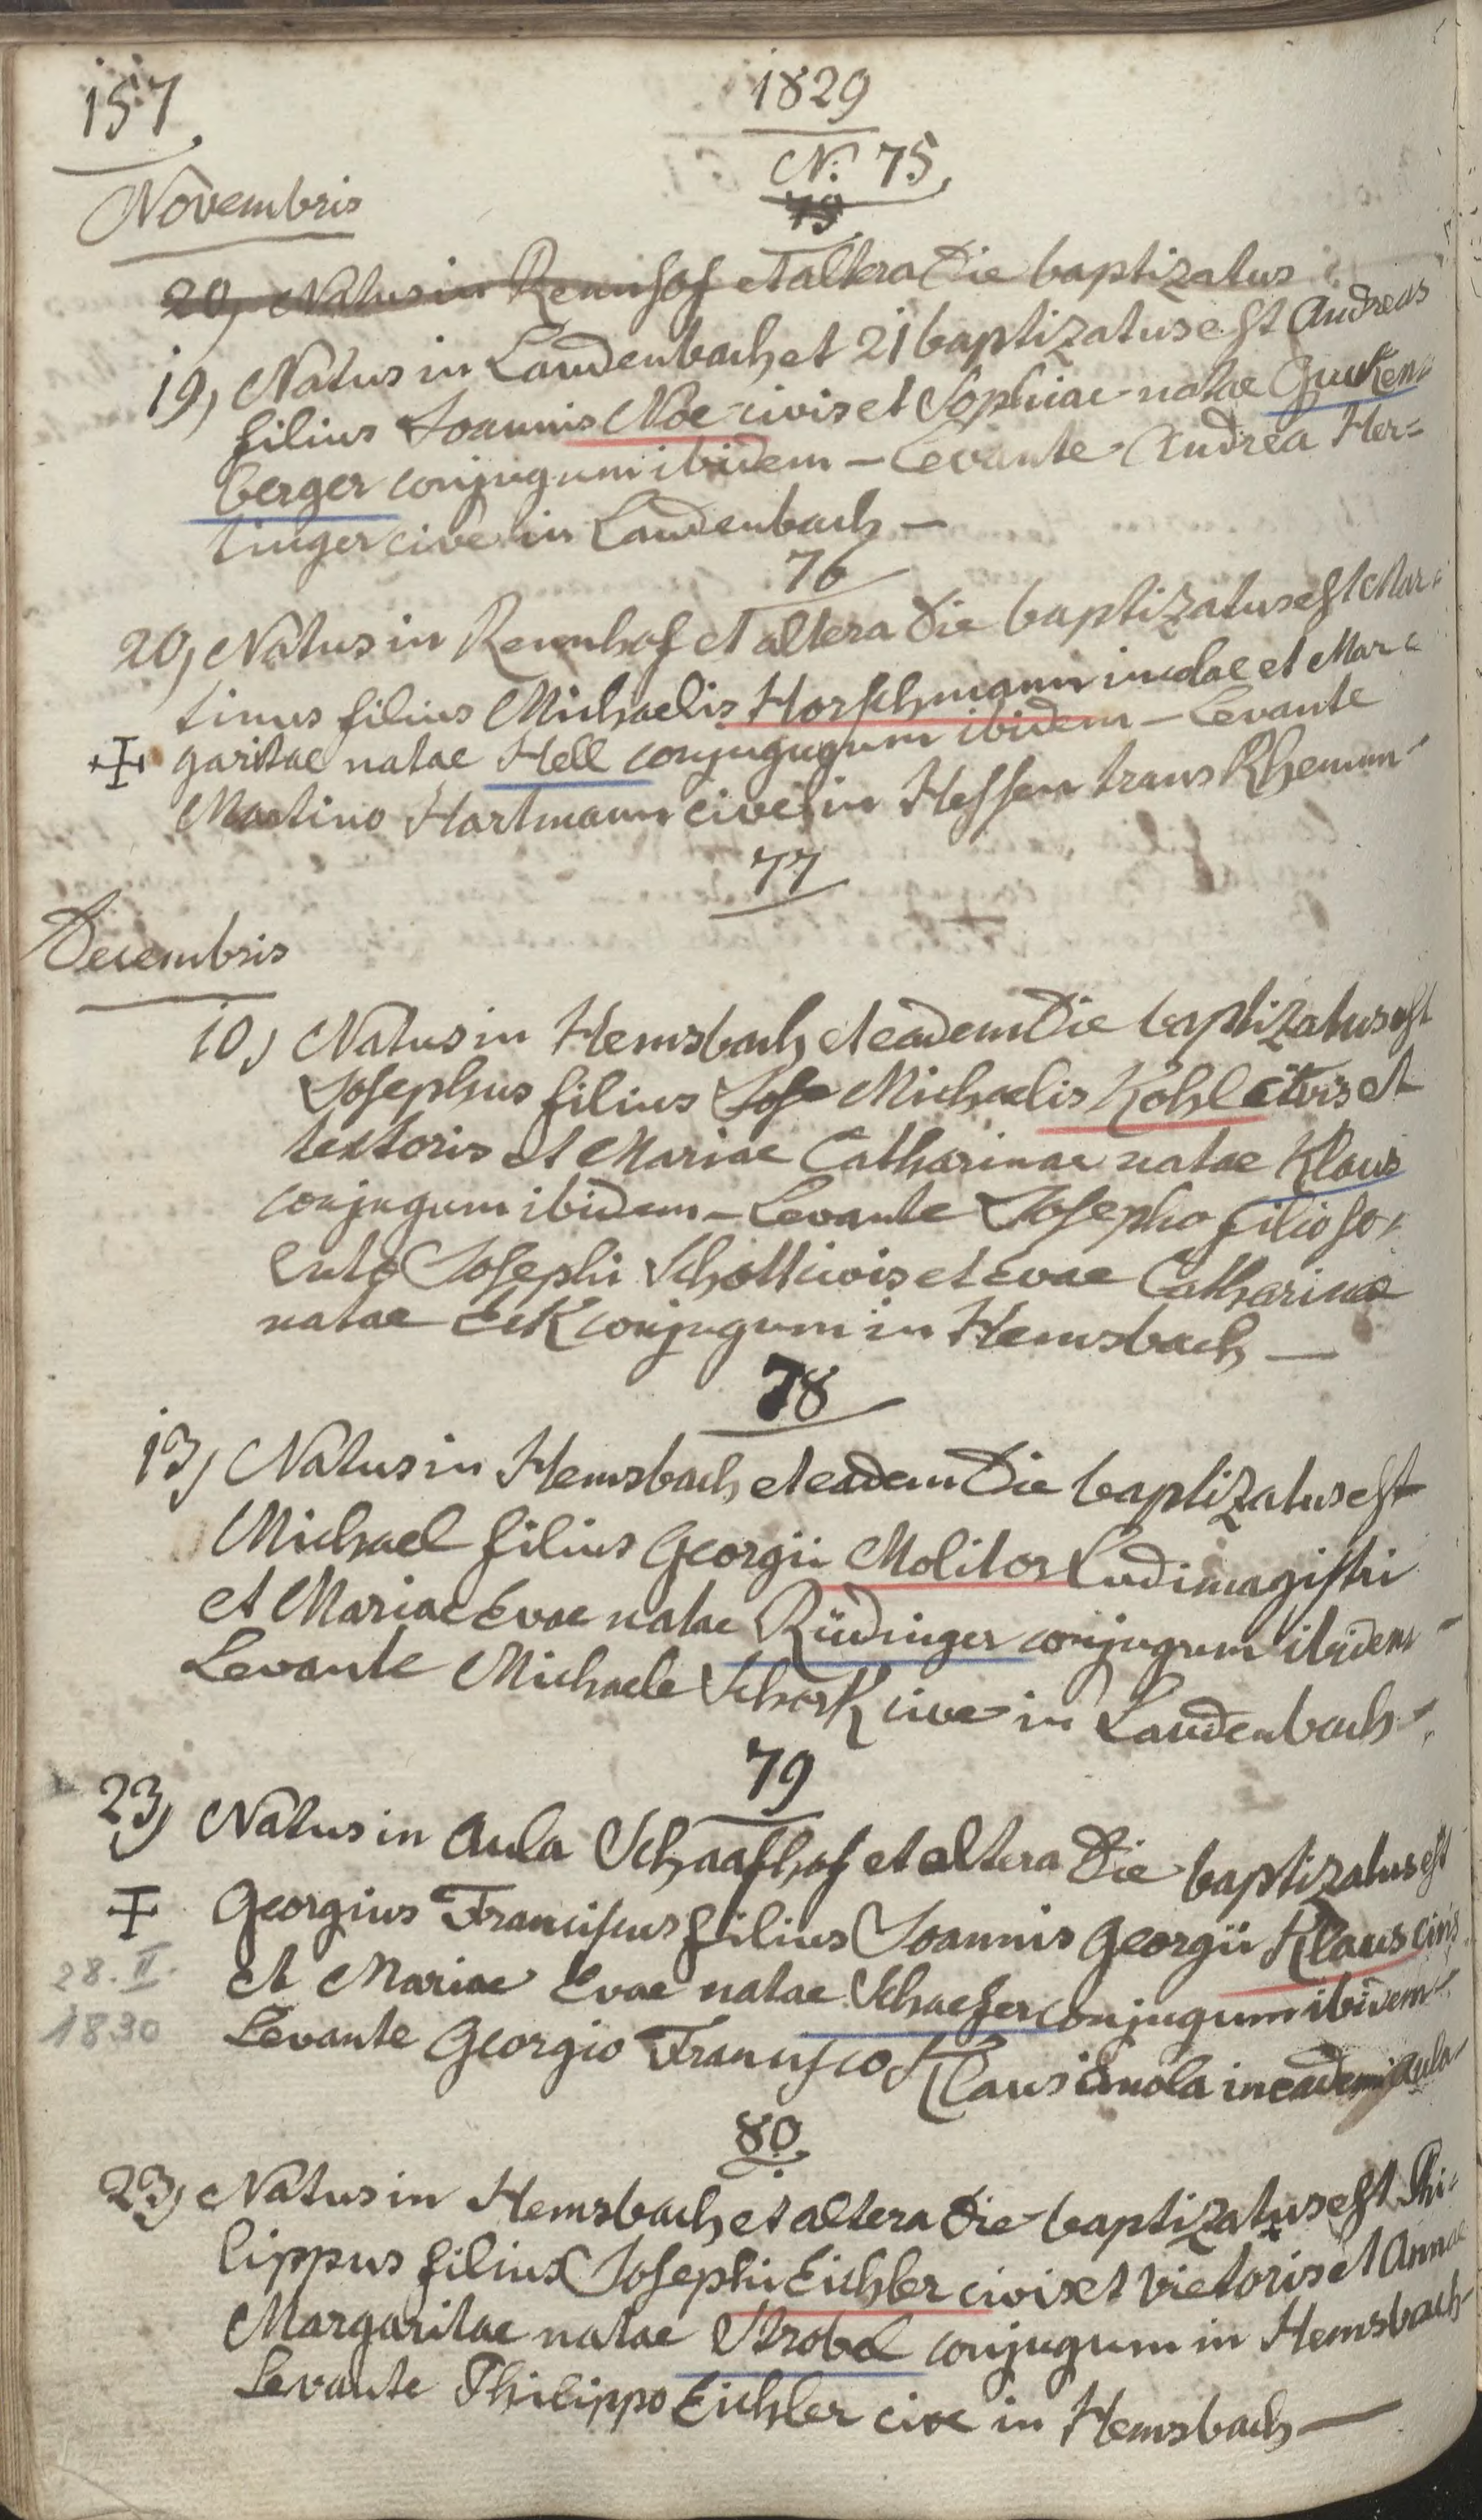 157
1829
N. 75
79
Novembris
20, Natus in Rennhof et altera Die baptizatus
19, Natus in Laudenbach et 21 baptizatus est Andreas
filius Joannis Noe civis et Sophiae natae Gucken=
berger conjugum ibidem – Levante Andrea Her=
tinger cive in Laudenbach –
76
20, Natus in Rennhof et altera Die baptizatus est Mar=
tinus filius Michaelis Horschmann incolae et Mar=
garitae natae Hell conjugugum ibidem – Levante
Martino Hartmann cive in Hessen trans Rhenum –
77
Decembris
10, Natus in Hemsbach et eadem Die baptizatus est
Josephus filius Jose Michaelis Kohl civis et
textoris et Mariae Catharinae natae Klaus
conjugum ibidem – Levante Josepho filio so=
luto Josephi Schott civis et Evae Catharinae
natae Eck conjugum in Hemsbach –
78
13, Natus in Hemsbach et eadem Die baptizatus est
Michael filius Georgii Molitor Ludimagistri
et Mariae Evae natae Rüdinger conjugum ibidem –
Levante Michaele Schork cive in Laudenbach –
79
23, Natus in Aula Schaafhof et altera Die baptizatus est
Georgius Franciscus filius Joannis Georgii Klaus civis
28. II.
et Mariae Evae natae Schaefer conjugum ibidem –
1830
Levante Georgio Francisco Klaus incola in eadem Aula
80
23, Natus in Hemsbach et altera Die baptizatus est Phi=
lippus filius Josephi Eichler civis et vietoris et Annae
Margaritae natae Strobel conjugum in Hemsbach –
Levante Philippo Eichler cive in Hemsbach –